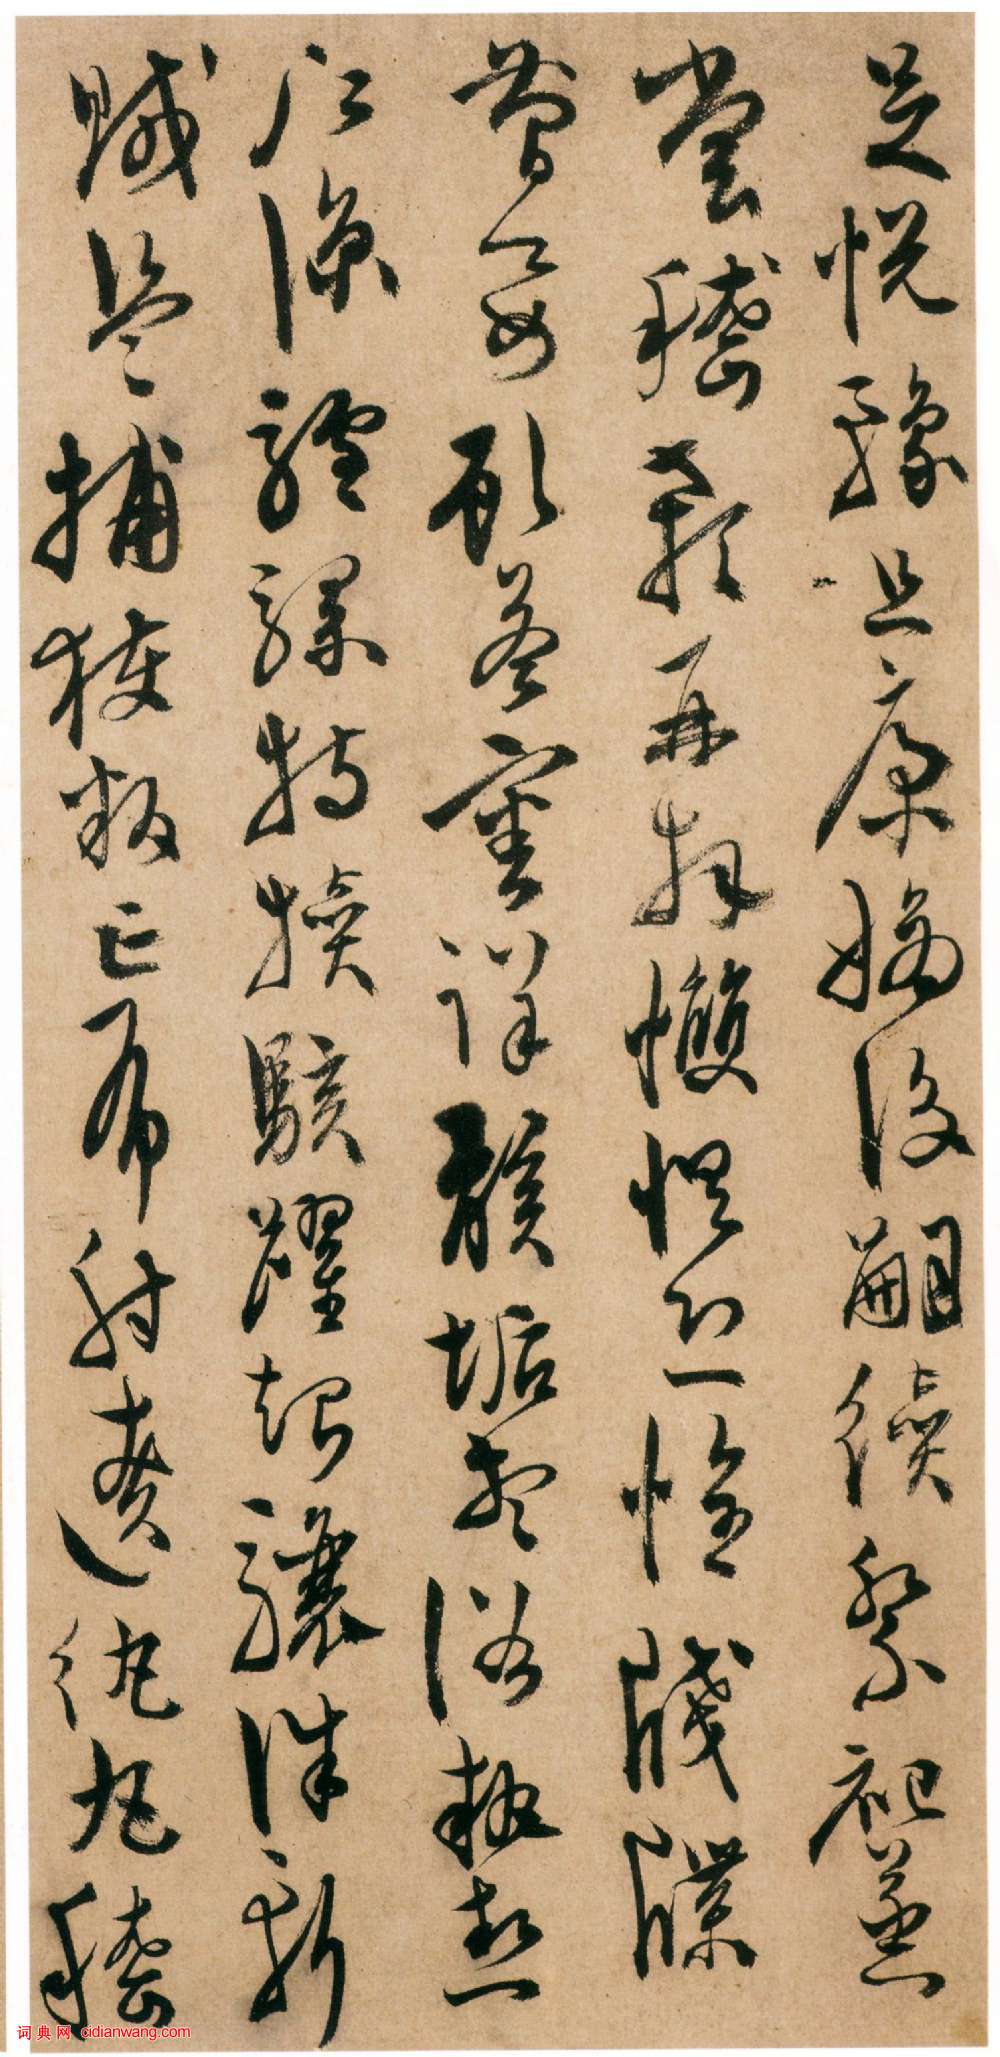 足悅豫且康嫡後嗣續祭祀蒸
嘗稽顙再拜𢥠懼恐惶牋牒
簡要顧答審詳骸垢想浴執熱
願涼驢騾特犢駭躍超驤誅斬
賊盜捕獲叛亡布射遼紈丸嵇
词典网 cidianwang.com